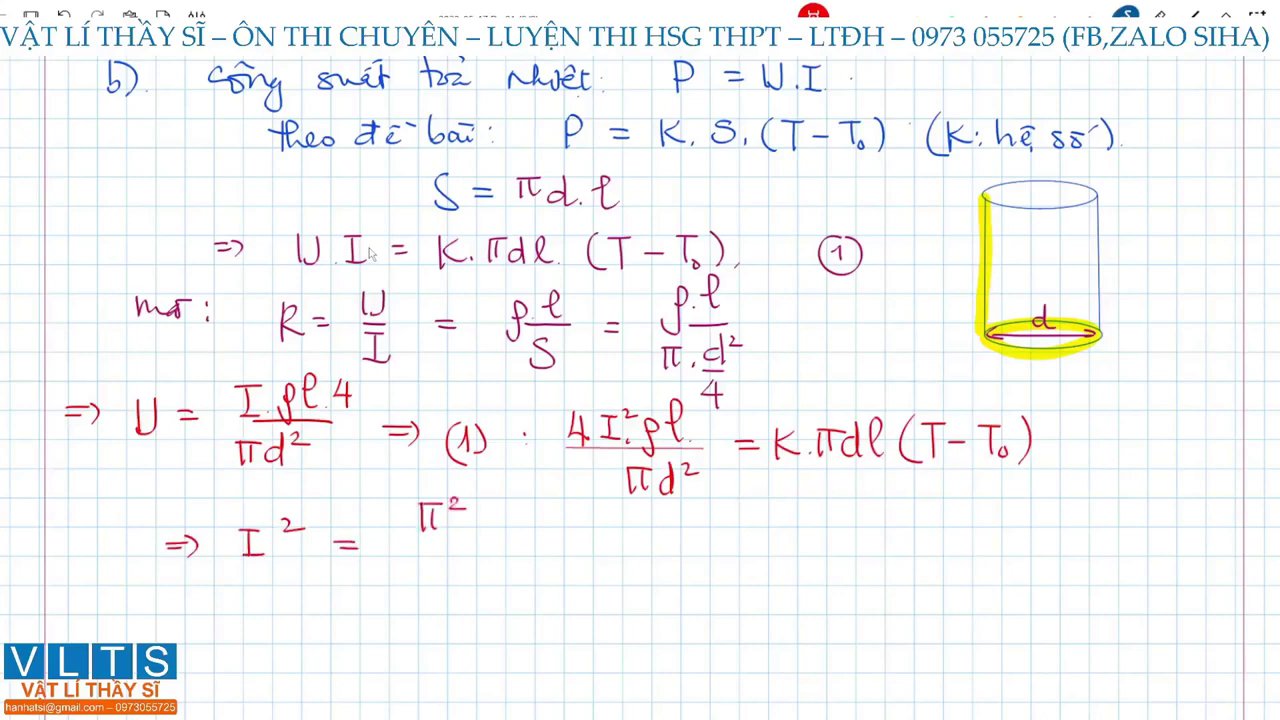 VẬT LÍ THẦY SĨ – ÔN THI CHUYÊN – LUYỆN THI HSG THPT – LTĐH – 0973 055725 (FB,ZALO SIHA)
b). Công suất toả nhiệt: P = U.I
theo đề bài: P = K.S.(T – T₀) (K: hệ số).
S = πd.l
=> U.I = K.πdl.(T – T₀). (1)
mà: R = U/I = ρ.l/S = ρ.l/(π.d²/4)
d
=> U = I.ρl.4/(πd²) => (1): 4.I².ρl./(πd²) = K.πdl(T – T₀)
=> I² = π²
VLTS
VẬT LÍ THẦY SĨ
hanhatsi@gmail.com – 0973055725